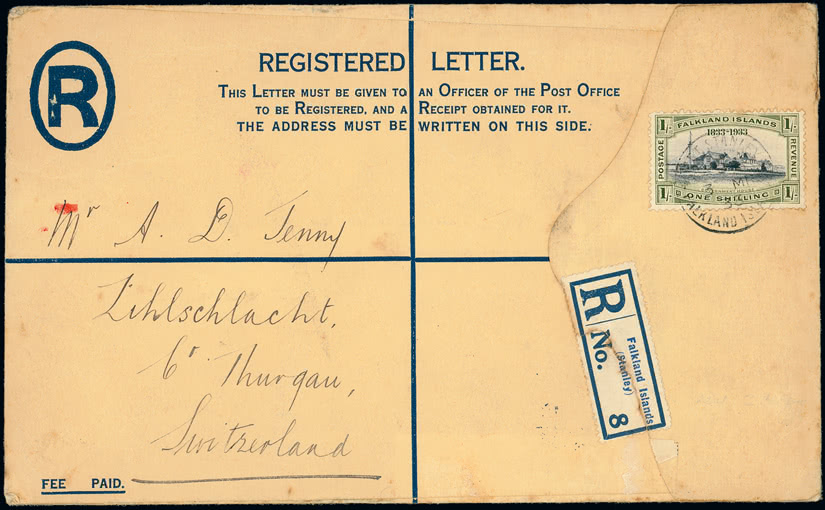 R
REGISTERED LETTER.
THIS LETTER MUST BE GIVEN TO AN OFFICER OF THE POST OFFICE
TO BE REGISTERED, AND A RECEIPT OBTAINED FOR IT.
THE ADDRESS MUST BE WRITTEN ON THIS SIDE.
1/- FALKLAND ISLANDS 1/-
1833-1933
POSTAGE
REVENUE
GOVERNMENT HOUSE
1/- ONE SHILLING 1/-
STANLEY
FALKLAND IS
Mr A. D. Jenny
Zihlschlacht,
Co Thurgau,
Switzerland
R
Falkland Islands
(Stanley)
No. 8
FEE PAID.